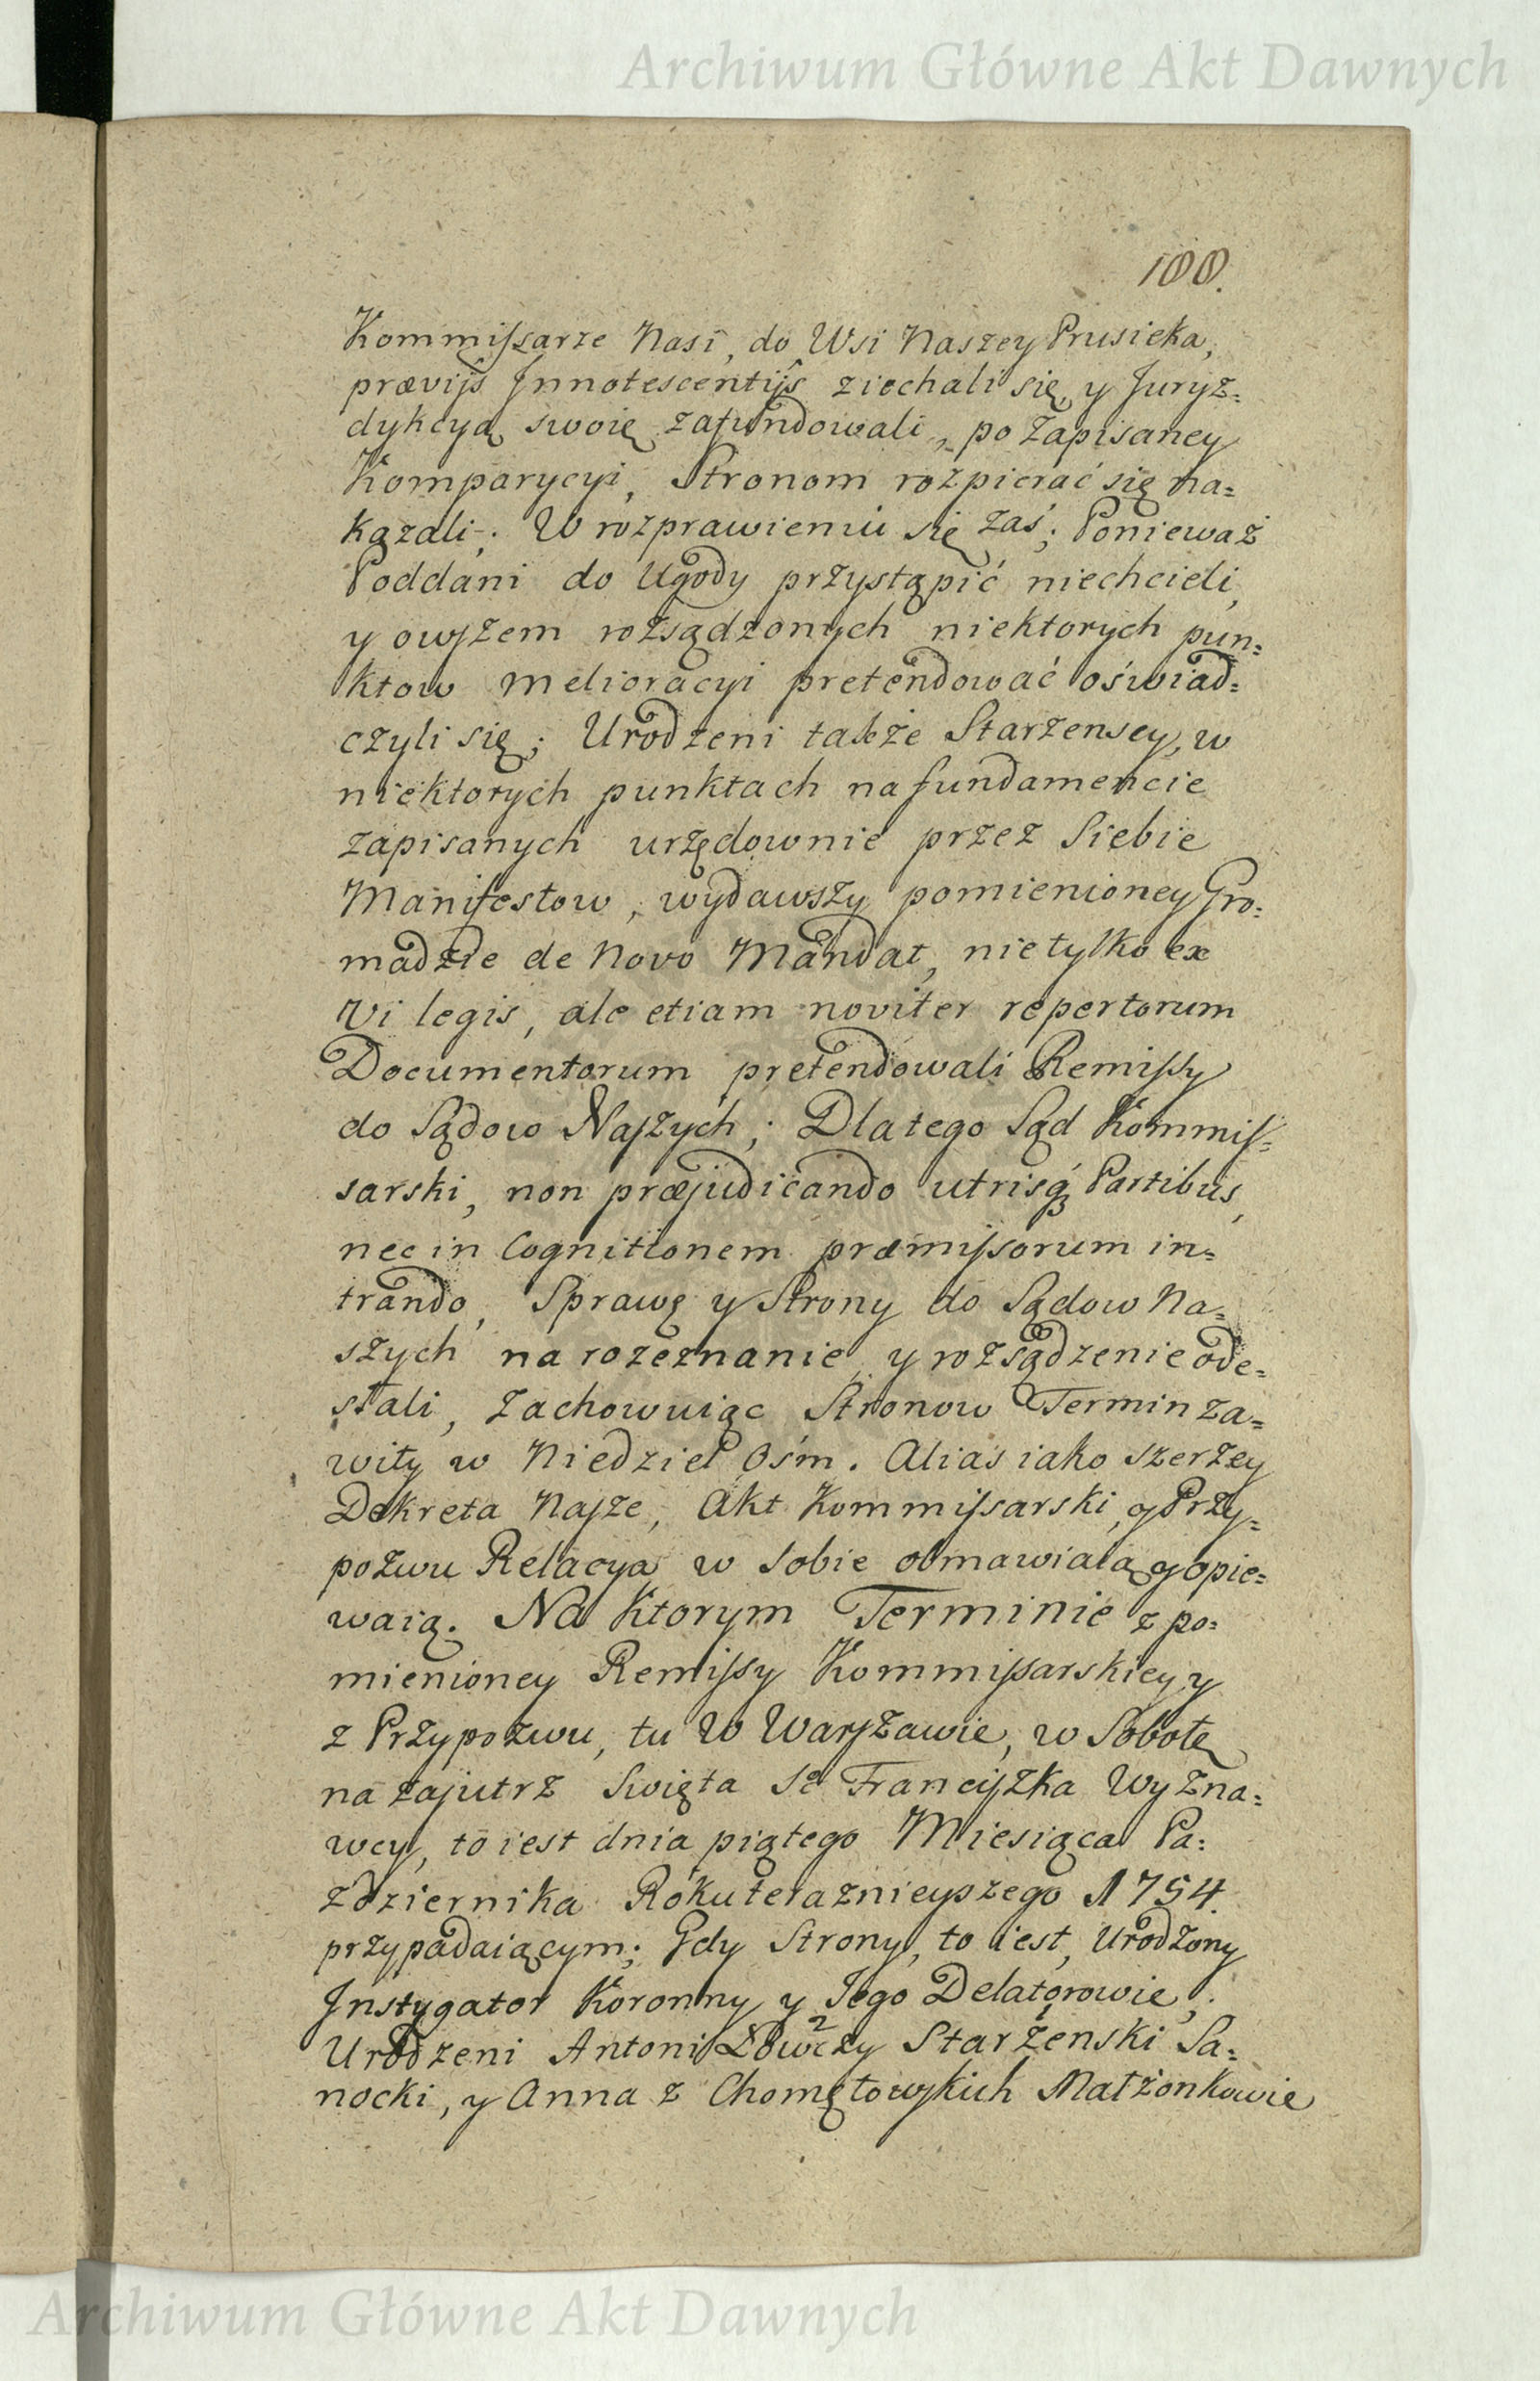 Archiwum Główne Akt Dawnych
100.
Kommissarze Nasi, do Wsi Naszey Prusieka,
prævijs Innotescentijs ziechali się, y Juryz=
dykcyą swoię zafundowali, po zapisaney
Komparycyi, Stronom rozpierać się na=
kazali; W rozprawieniu się zaś; Ponieważ
Poddani do Ugody przystąpić niechcieli,
y owszem rozsądzonych niektorych pun=
ktow melioracyi pretendować oświad=
czyli się; Urodzeni także Starzenscy, w
niektorych punktach na fundamencie
zapisanych urzędownie przez Siebie
Manifestow, wydawszy pomienioney Gro=
madzie de Novo Mandat, nie tylko ex
Vi legis, ale etiam noviter repertorum
Documentorum pretendowali Remissy
do Sądow Naszych; Dlatego Sąd Kommis=
sarski, non præjudicando utrisq Partibus,
nec in Cognitionem præmissorum in=
trando, Sprawę y Strony do Sądow Na=
szych na rozeznanie y rozsądzenie ode=
słali, zachowuiąc Stronow Termin za=
wity w Niedziel Ośm. Alias iako szerzey
Dekreta Nasze, Akt Kommissarski, y Przy=
pozwu Relacya w sobie obmawiaią y opie=
waią. Na Ktorym Terminie z po=
mienioney Remissy Kommissarskiey y
z Przypozwu, tu w Warszawie, w Sobotę
na zajutrz Swięta Sº Franciszka Wyzna=
wcy, to iest dnia piątego Miesiąca Pa=
zdziernika Roku teraznieyszego 1754.
przypadaiącym; Gdy Strony, to iest, Urodzony
Instygator Koronny y Iego Delatorowie,
Urodzeni Antoni Łowczy 2 Starzenski Sa=
nocki, y Anna z Chomętowskich Małżonkowie
Archiwum Główne Akt Dawnych